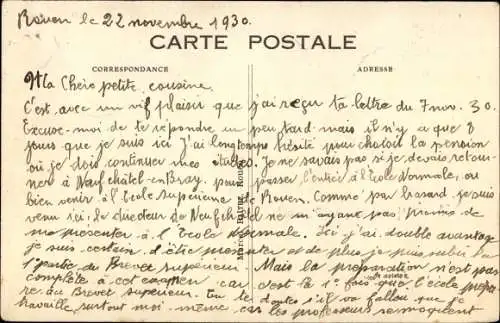 Rouen le 22 novembre 1930.
CARTE POSTALE
CORRESPONDANCE
ADRESSE
Ma Chère petite cousine
C'est avec un vif plaisir que j'ai reçu ta lettre du 7 nov. 30.
Excuse-moi de te répondre un peu tard mais il n'y a que 8
jours que je suis ici j'ai longtemps hésité pour choisir la pension
où je dois continuer mes études. Je ne savais pas si je devais retour-
ner à Neufchâtel-en-Bray, pour passer l'entrée à l'Ecole Normale, ou
bien venir à l'Ecole Supérieure de Rouen. Comme par hasard je suis
venu ici, le directeur de Neufchâtel ne m'ayant pas promis de
me présenter à l'Ecole Normale. Ici j'ai double avantage
je suis certain d'être présenter et de plus je puis subir la
1ère partie du Brevet supérieur. Mais la préparation n'est pas
complète à cet examen car c'est la 1ère fois que l'école prépa
re au Brevet supérieur. Tu te doutes s'il va falloir que je
travaille surtout moi-même car les professeurs